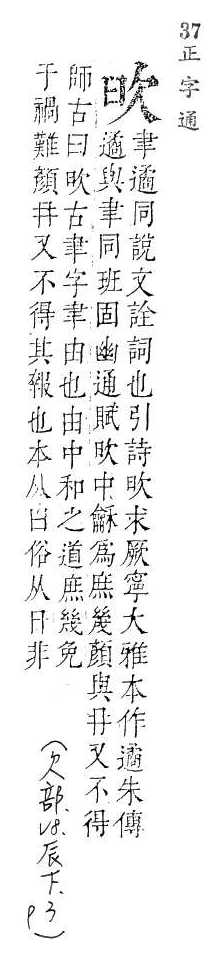 37正字通
欥
聿遹同說文詮詞也引詩欥求厥寧大雅本作遹朱傳
遹與聿同班固幽通賦欥中龢爲庶幾顏與冉又不得
師古曰欥古聿字聿由也由中和之道庶幾免
于禍難顏冉又不得其報也本从曰俗从日非
(欠部.V8.辰下.P3)